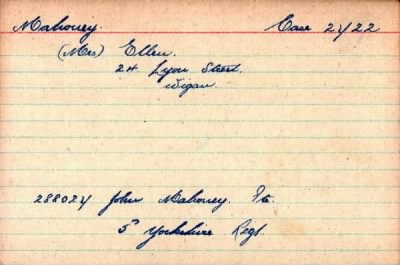 Mahoney. Case 2422
(Mrs) Ellen.
24 Lyon Street.
Wigan
288024 John Mahoney. Pte.
5th Yorkshire Regt.